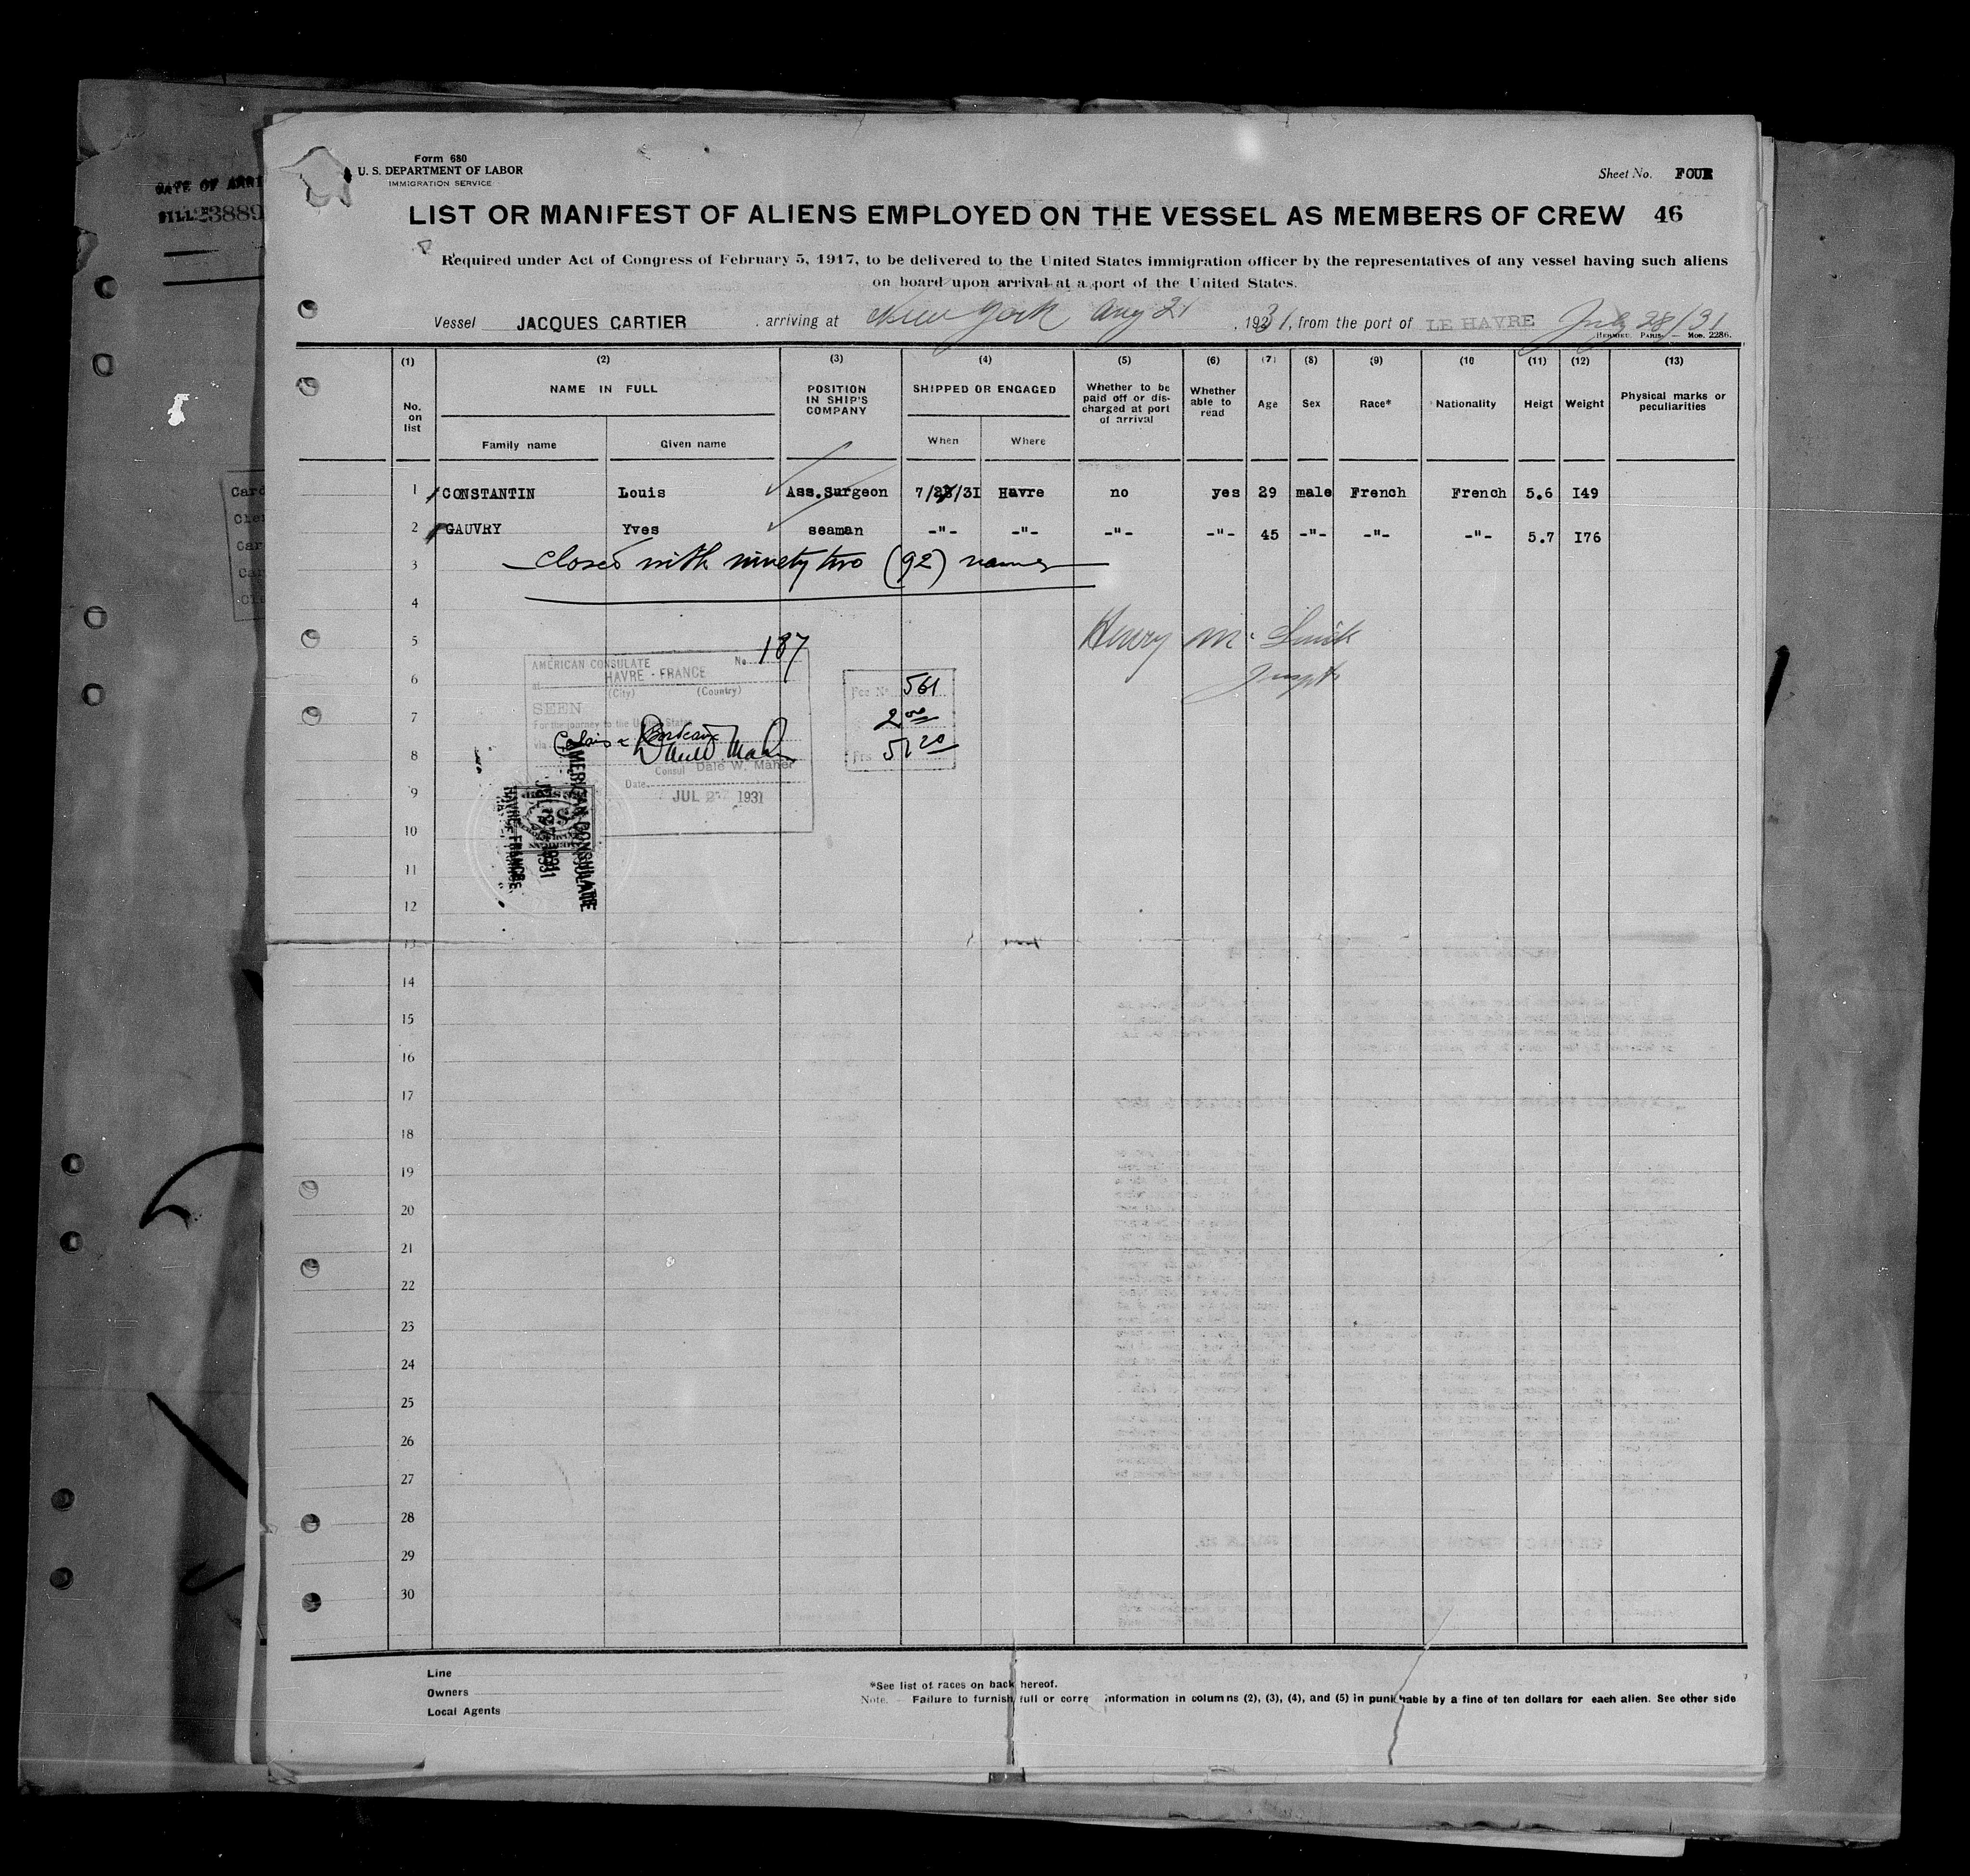 Form 680
U. S. DEPARTMENT OF LABOR
IMMIGRATION SERVICE
Sheet No. FOUR
LIST OR MANIFEST OF ALIENS EMPLOYED ON THE VESSEL AS MEMBERS OF CREW 46
Required under Act of Congress of February 5, 1917, to be delivered to the United States immigration officer by the representatives of any vessel having such aliens
on board upon arrival at a port of the United States.
Vessel JACQUES CARTIER , arriving at New York Aug 21 , 1931, from the port of LE HAVRE July 28/31
HERMIEU, PARIS. — MOD. 2286.
(1) (2) (3) (4) (5) (6) (7) (8) (9) (10 (11) (12) (13)
No. on list
NAME IN FULL
Family name Given name
POSITION IN SHIP'S COMPANY
SHIPPED OR ENGAGED
When Where
Whether to be paid off or discharged at port of arrival
Whether able to read
Age Sex Race* Nationality Heigt Weight
Physical marks or peculiarities
1 CONSTANTIN Louis Ass.Surgeon 7/ /3I Havre no yes 29 male French French 5.6 I49
2 GAUVRY Yves seaman -"- -"- -"- -"- 45 -"- -"- -"- 5.7 I76
3 closed with ninety two (92) names
4
5
6
7
8
9
10
11
12
13
14
15
16
17
18
19
20
21
22
23
24
25
26
27
28
29
30
Henry M.
AMERICAN CONSULATE No 187
at HAVRE - FRANCE
(City) (Country)
SEEN
For the journey to the United States
via Bordeaux
Consul Dale W. Maher
Date JUL 2 1931
Fee No 561
2 00
Frs 51 20
AMERICAN CONSULATE
HAVRE FRANCE
Line
Owners
Local Agents
*See list of races on back hereof.
Note. — Failure to furnish full or corre information in columns (2), (3), (4), and (5) in punishable by a fine of ten dollars for each alien. See other side
DATE OF ARRI
23889